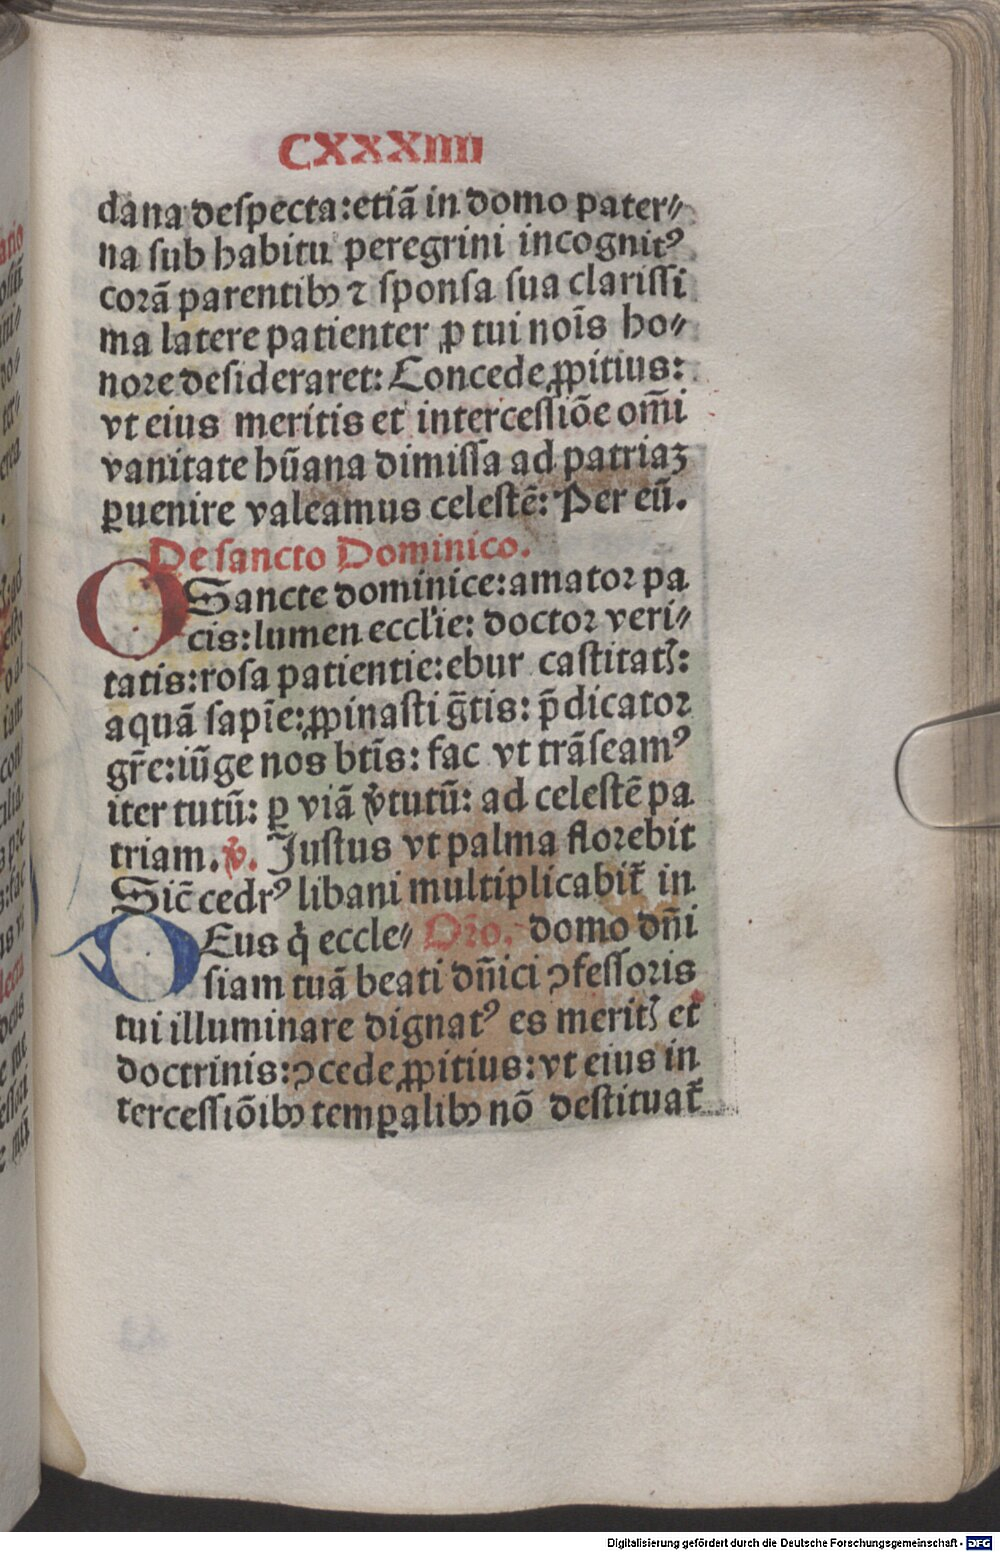 CXXXIIII
dana despecta: etiā in domo pater⸗
na sub habitu peregrini incognitꝰ
corā parentibꝫ ⁊ sponsa sua clarissi
ma latere patienter ꝓ tui nois̄ ho⸗
nore desideraret: Concede ꝓpitius:
vt eius meritis et intercessiōe om̄i
vanitate hūana dimissa ad patriaꝫ
ꝑuenire valeamus celestē: Per eū.
De sancto Dominico.
O Sancte dominice: amator pa
cis: lumen eccl'ie: doctor veri⸗
tatis: rosa patientie: ebur castitatꝭ:
aquā sapīe: ꝓpinasti ḡtis: p̄dicator
gr̄e: iūge nos btīs: fac vt trāseamꝰ
iter tutū: ꝑ viā v̄tutū: ad celestē pa
triam. ℣. Justus vt palma florebit
Sic̄ cedrꝰ libani multiplicabit̄ in
DEus q̇ eccle⸗ Oro. domo dn̄i
siam tuā beati dn̄ici ꝯfessoris
tui illuminare dignatꝰ es meritꝭ et
doctrinis: ꝯcede ꝓpitius: vt eius in
tercessiōibꝫ temꝑalibꝫ nō destituat̄
Digitalisierung gefördert durch die Deutsche Forschungsgemeinschaft - DFG